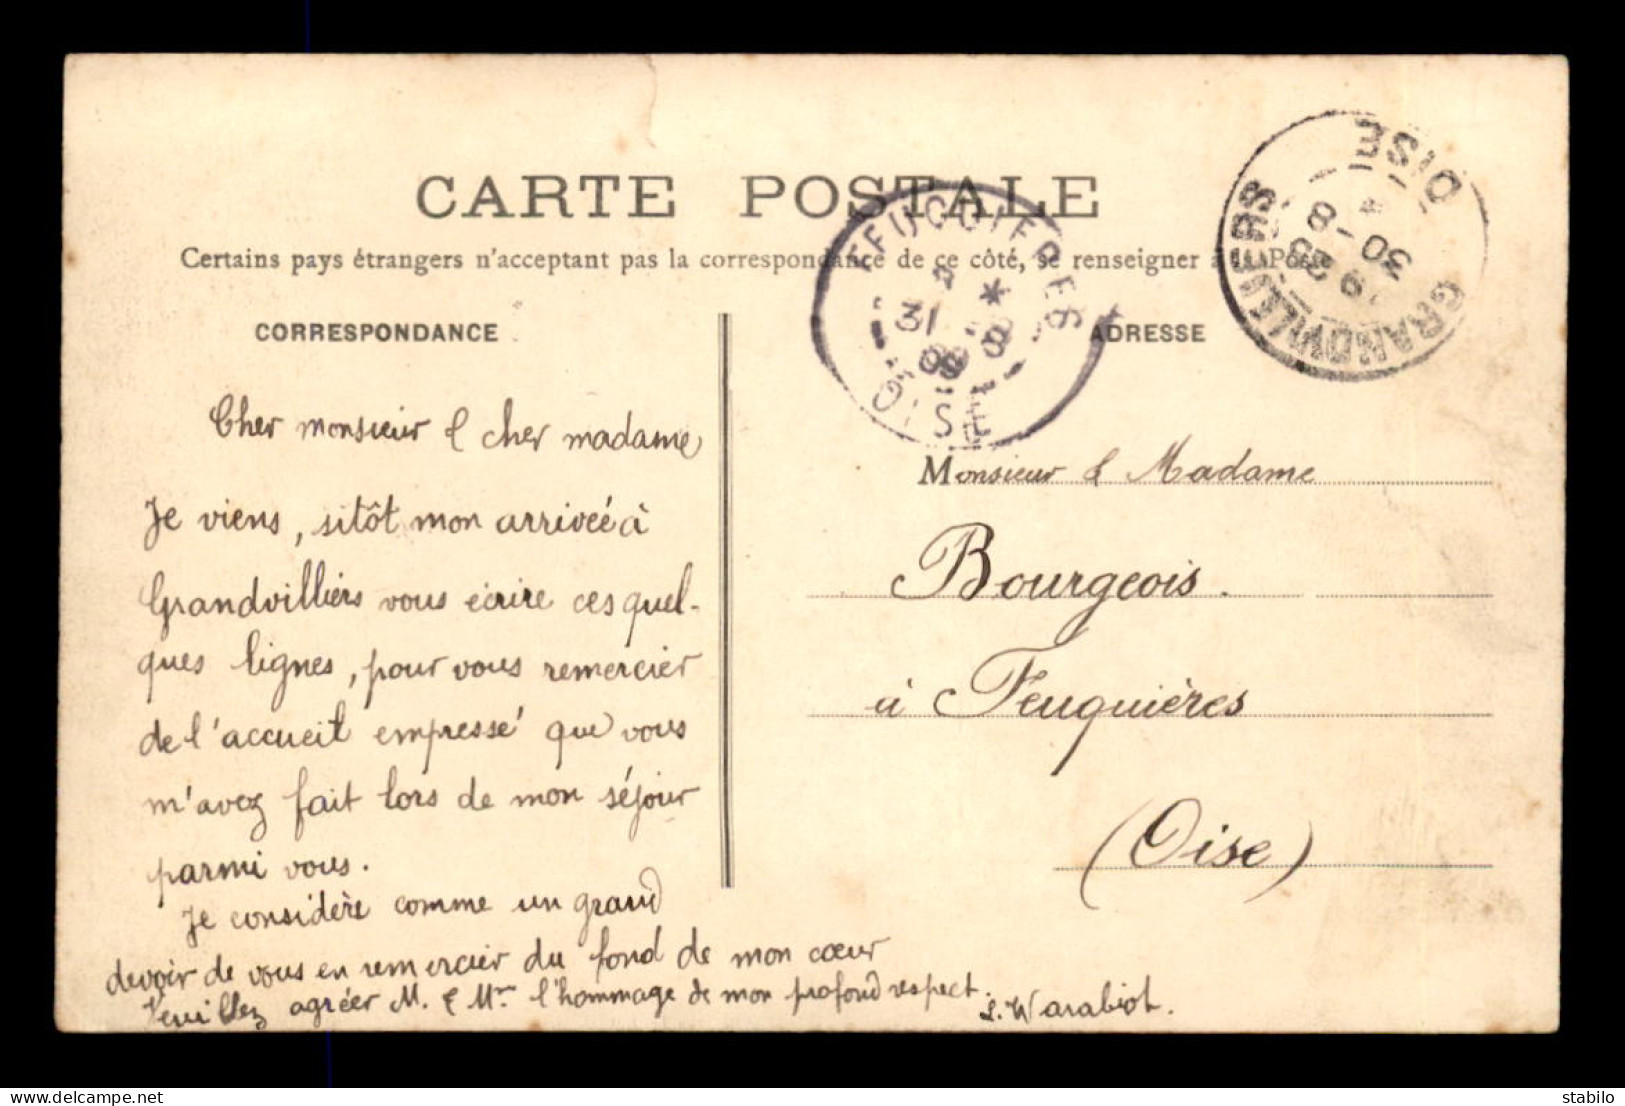 CARTE POSTALE
Certains pays étrangers n'acceptent pas la correspondance de ce côté, se renseigner à la Poste
CORRESPONDANCE
Cher monsieur & cher madame
Je viens, sitôt mon arriveé à
Grandvilliers vous écrire ces quel-
ques lignes, pour vous remercier
de l'accueil empressé que vous
m'avez fait lors de mon séjour
parmi vous.
Je considère comme un grand
devoir de vous en remercier du fond de mon cœur
Veuillez agréer M. & Mme l'hommage de mon profond respect.
L. Warabiot.
ADRESSE
Monsieur & Madame
Bourgeois.
à Feuquières
(Oise)
FEUQUIERES
31 8
OISE
GRANDVILLIERS
30 - 8
OISE
stabilo